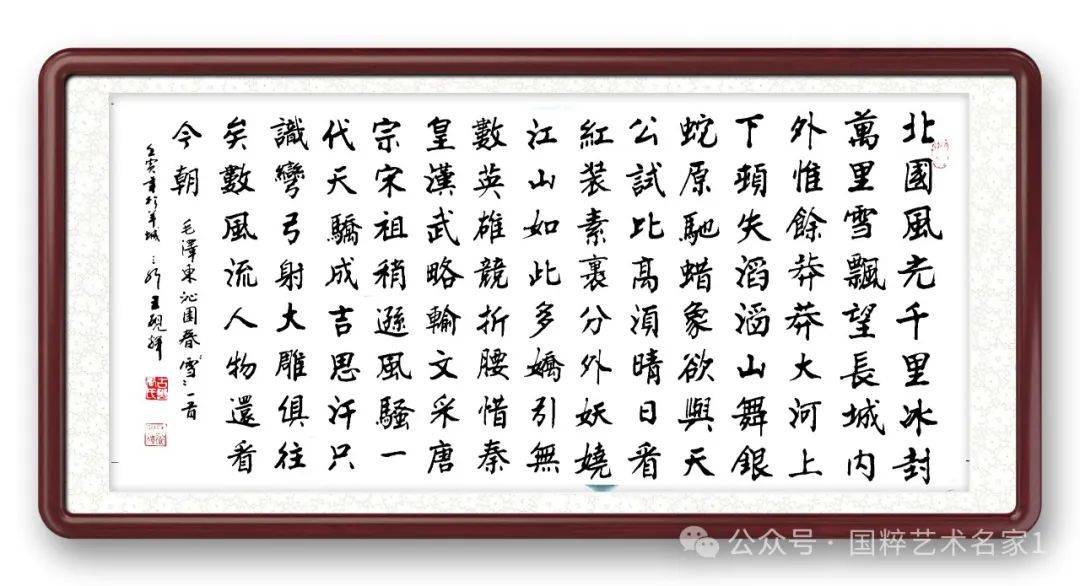 北國風光千里冰封
萬里雪飄望長城内
外惟餘莽莽大河上
下頓失滔滔山舞銀
蛇原馳蜡象欲與天
公試比高須晴日看
紅装素裹分外妖嬈
江山如此多嬌引無
數英雄競折腰惜秦
皇漢武略輸文采唐
宗宋祖稍遜風騷一
代天驕成吉思汗只
識彎弓射大雕俱往
矣數風流人物還看
今朝
毛澤東沁園春雪一首
壬寅年於羊城 王
公众号 · 国粹艺术名家1